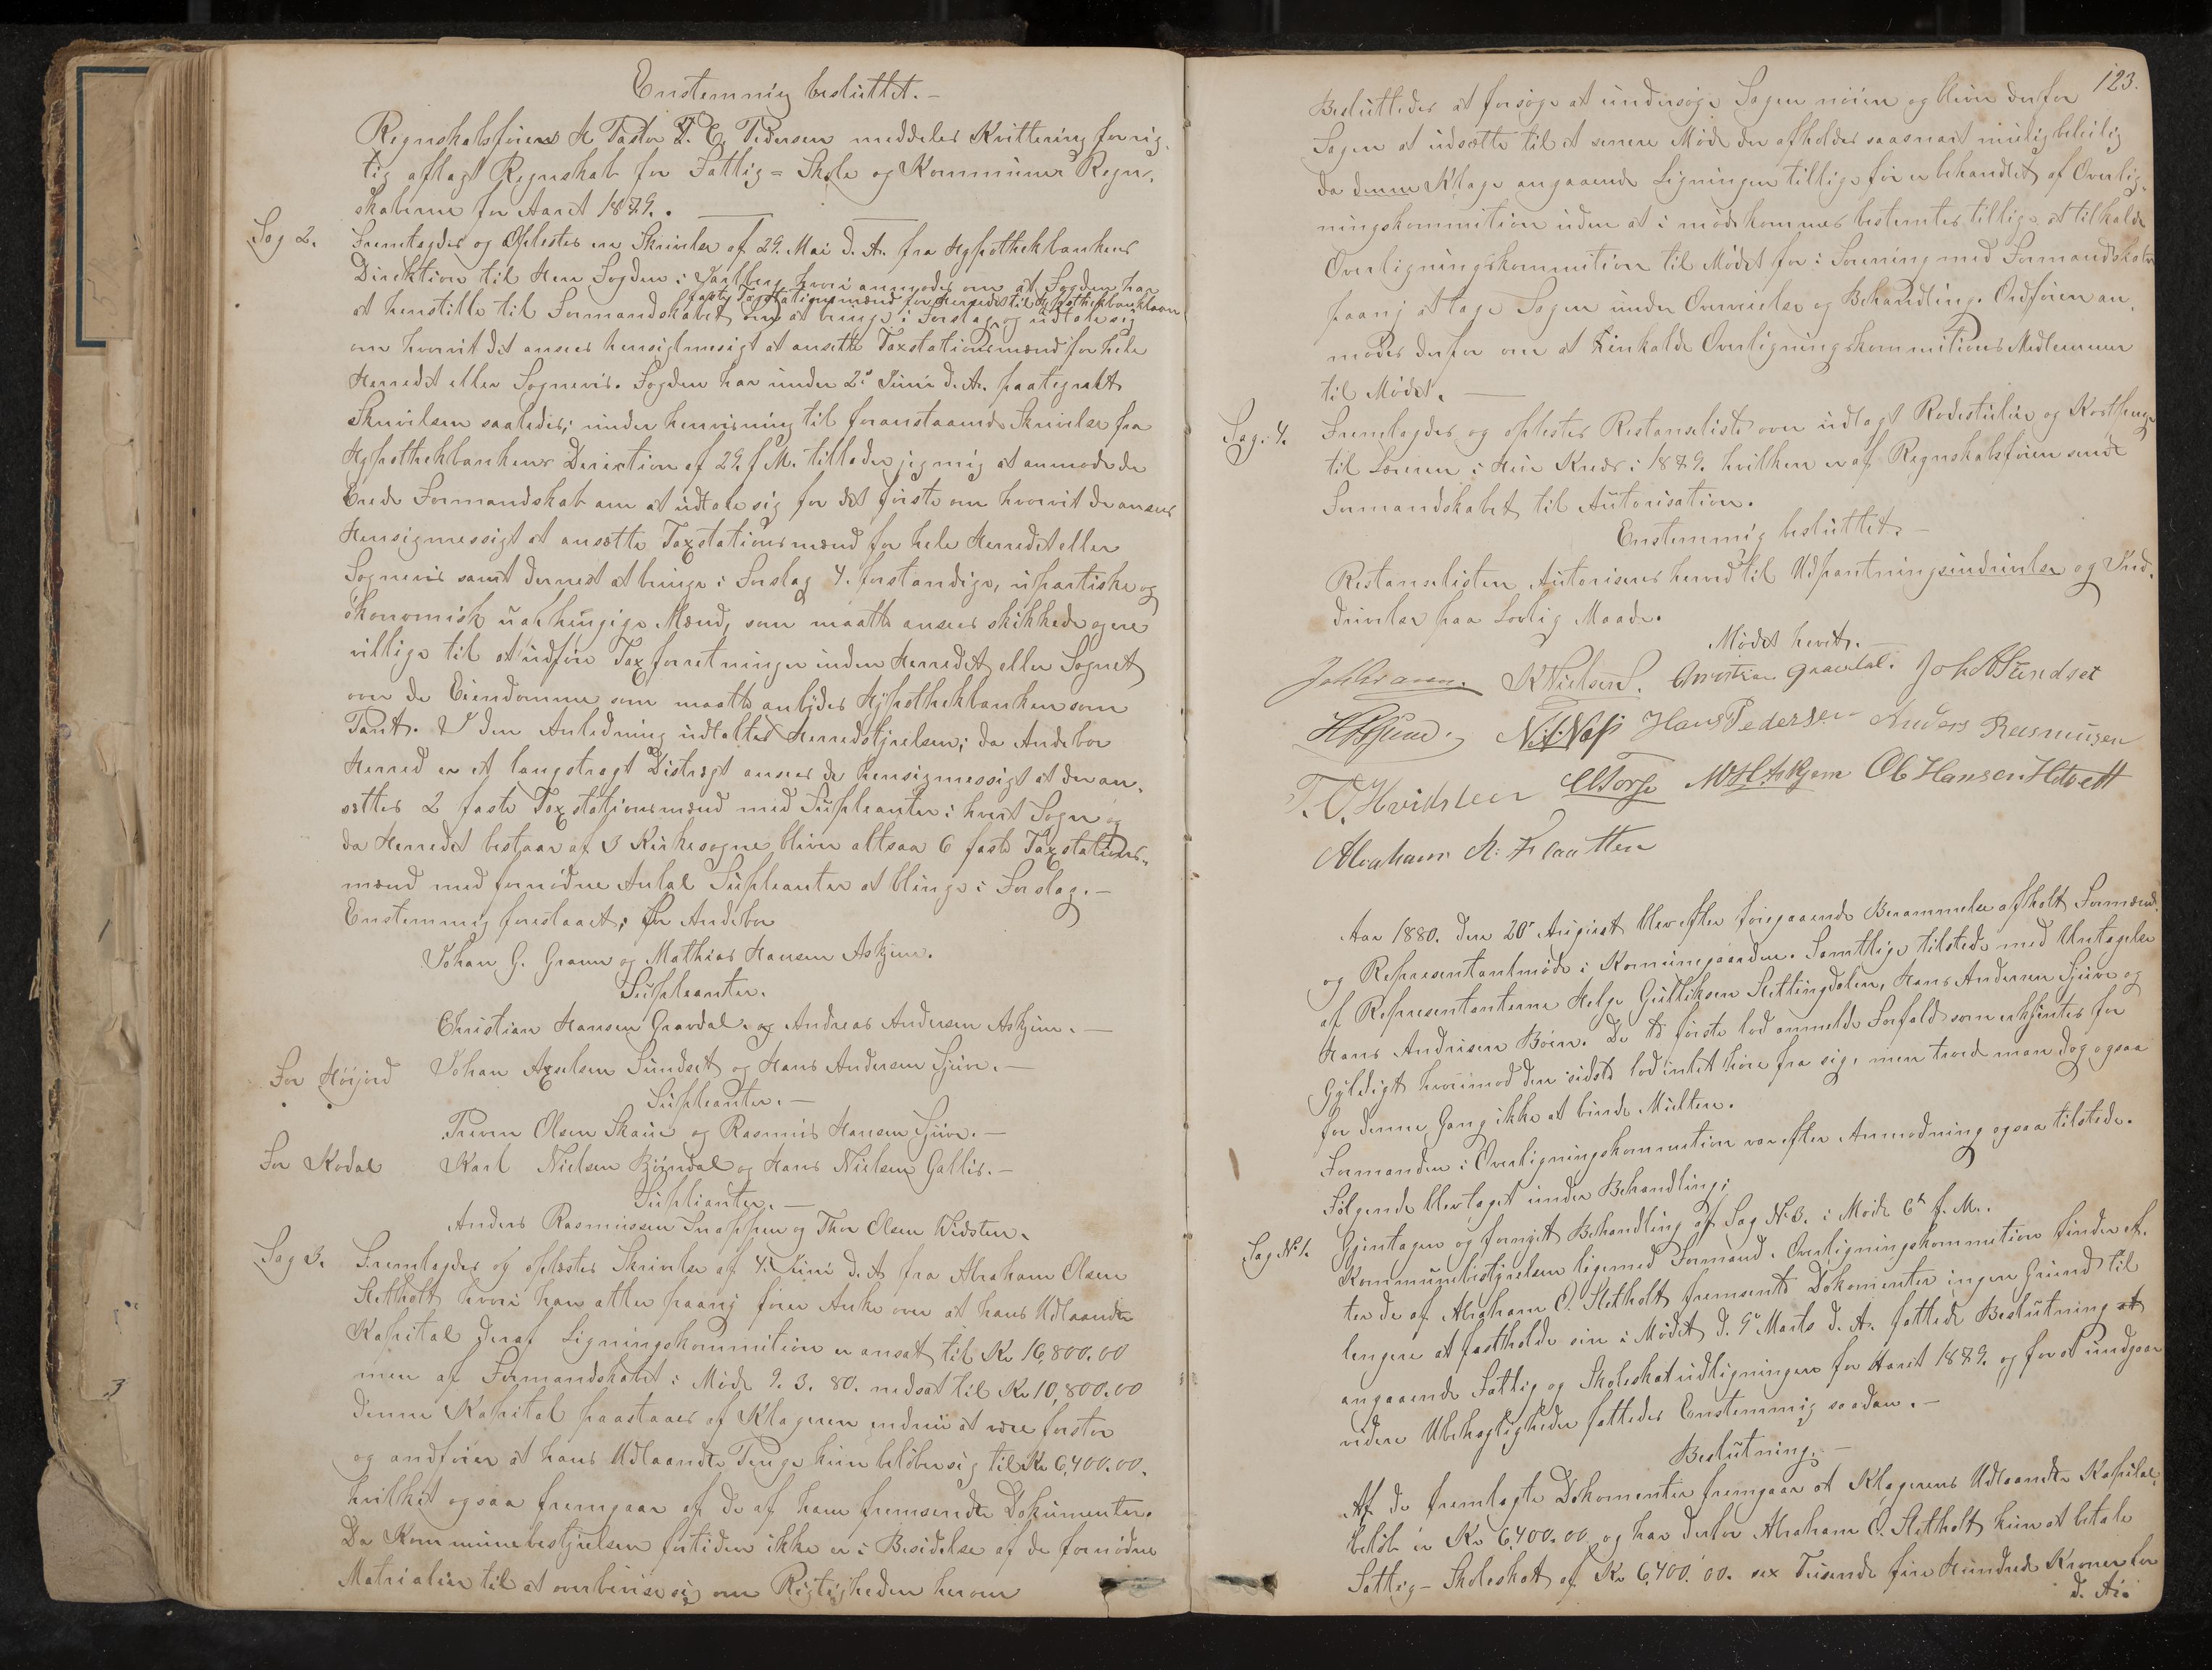 Enstemmig besluttet. —
Regnskabsføieren Hr Pastor T. C. Pedersen meddeles Kvittering for rig-
tig aflagt Regnskab for Fattig = Skole og Kommune Regn-
skaberne for Aaret 1879. —
Sag 2. Fremlagdes og Oplestes en Skrivelse af 29. Mai d. A. fra Hypothekbankens
Direktion til Herr Fogden i Jarlsberg hvori anmodes om at Fogden har
faste Taxstationsmænd for Herredet til Hypothekbanklaan
at henstille til Formandskabet om at bringe i Forslag og udtale sig
om hvorvit det ansees hensigtmesigt at ansette Taxstationsmænd for hele
Herredet eller Sognevis. Fogden har under 2d Juni d. A. paategnet
Skrivelsen saaledes; under henvisning til foranstaaende Skrivelse fra
Hypothekbankens Direktion af 29. f. M. tillader jeg mig at anmode de
Ærede Formandskab om at udtale sig for det første om hvorvit de anser
Hensigmessigt at ansætte Taxstationsmænd for hele Herredet eller
Sognevis samt dernest at bringe i Forslag 4. forstandige, upartiske og
økonomisk uafhengige Mænd, som maatte ansees skikkede og ere
villige til at udføre Taxforretninger inden Herredet eller Sognet
over de Eiendomme som maatte anbydes Hypothekbanken som
Pant. I den Anledning udtalte Herredstyrelsen; da Andebu
Herred er et langstragt Distrægt ansees de hensigmessigt at der an-
sættes 2 faste Taxstationsmænd med Supleanter i hvert Sogn og
da Herredet bestaar af 3 Kirkesogne bliver altsaa 6 faste Taxstations-
mænd med fornødne Antal Supleanter at bringe i Forslag. —
Enstemmig foreslaaet; for Andebu
Johan G. Gram og Mathias Hansen Askjem.
Supleanter.
Christian Hansen Gravdal og Andreas Andersen Askjem. —
For Høijord Johan Axelsen Sundset og Hans Andersen Gjuve. —
Supleanter. —
Trevn Olsen Skaui og Rasmus Hansen Gjuve. —
For Kodal Karl Nielsen Bjørndal og Hans Nielsen Gallis. —
Suplianter. —
Anders Rasmussen Snappen og Thor Olsen Hvidsten.
Sag 3. Fremlagdes og oplæstes Skrivelse af 4. Juni d. A fra Abraham Olsen
Stetholt hvori han atter paany fører Anke over at hans Udlaante
Kapital der af Ligningskommition er ansat til Kr 16,800.00
men af Formandskabet i Møde 9. 3. 80. nedsat til Kr 10,800.00
denne Kapital paastaaes af Klageren endnu at være for stor
og andfører at hans Udlaante Penge kun beløber sig til Kr 6,400.00.
hvilket ogsaa fremgaar af de af ham fremsendte Dokumenter.
Da Kommunebestyrelsen for tiden ikke er i Besidelse af de fornødne
Matrialier til at overbevise sig om Rigtigheden herom
123.
Besluttedes at forsøge at undersøge Sagen nøiere og blive derfor
Sagen at udsætte til et senere Møde der afholdes saasnart muelig beleilig
da denne Klage angaaende Ligningen tillige før er behandlet af Overlig-
ningskommition uden at i mødekommes bestemtes tillige at tilkalde
Overligningskommition til Mødet for i Forening med Formandskabet
paany at tage Sagen under Overveielse og Behandling. Ordføren an-
modes derfor om at Hinkalde Overligningskommitions Medlemmer
til Mødet. —
Sag. 4. Fremlagdes og oplestes Restanseliste over udlagt Rodestuleie og Kostpenge
til Læreren i Høie Kreds i 1879. hvilken er af Regnskabsføien sendt
Formandskabet til Autorisation.
Enstemmig besluttet. —
Restanselisten Autoriseres herved til Udpantningsindrivelse og Ind-
drivelse paa Lovlig Maade.
Mødet hevet. —
Joh Gram. K Nielsen. Christian Gravdal. Joh A Sundset
N. A. Næss Hans Pedersen Anders Rasmusen
T. O. Hvidsteen M H Askjem Ole Hansen Hotvett
Abraham A. Flaatten
Aar 1880. den 20de August blev efter foregaaende Berammelse afholt Formænd
og Representantmøde i Komunegaarden. Samtlige tilstede med Untagelse
af Representanterne Helge Gulliksen Stettingdalen, Hans Andersen Gjuve og
Hans Andrisen Bøen. De to første lod anmelde Forfald som erkjentes for
Gyldigt hvorimod den sidste lod intet høre fra sig, men troede man dog ogsaa
for denne Gang ikke at burde Mulktere.
Formanden i Overligningskommition var efter Anmodning ogsaa tilstede.
Følgende blev taget under Behandling;
Sag No 1. Gjentagen og fornyet Behandling af Sag No 3. i Møde 6te f. M.
Kommunebestyrelsen ligemed Formand. Overligningskommition finder ef-
ter de af Abraham O. Stetholt fremsente Dokomenter ingen Grund til
lengere at fastholde sin i Mødet d. 9de Marts d. A. fattede Beslutning at
angaaende Fattig og Skoleskatudligningen for Aaret 1879. og for at undgaa
videre Ubehagligheder fattedes Enstemmig saadan. —
Beslutning. —
Af de fremlagte Dokomenter fremgaar at Klagerens Udlaante Kapital-
beløb er Kr 6,400.00 og har derfor Abraham O. Stetholt kun at betale
Fattig- Skoleskat af Kr 6,400.00. sex Tusende fire Hundrede Kroner for
d. A.